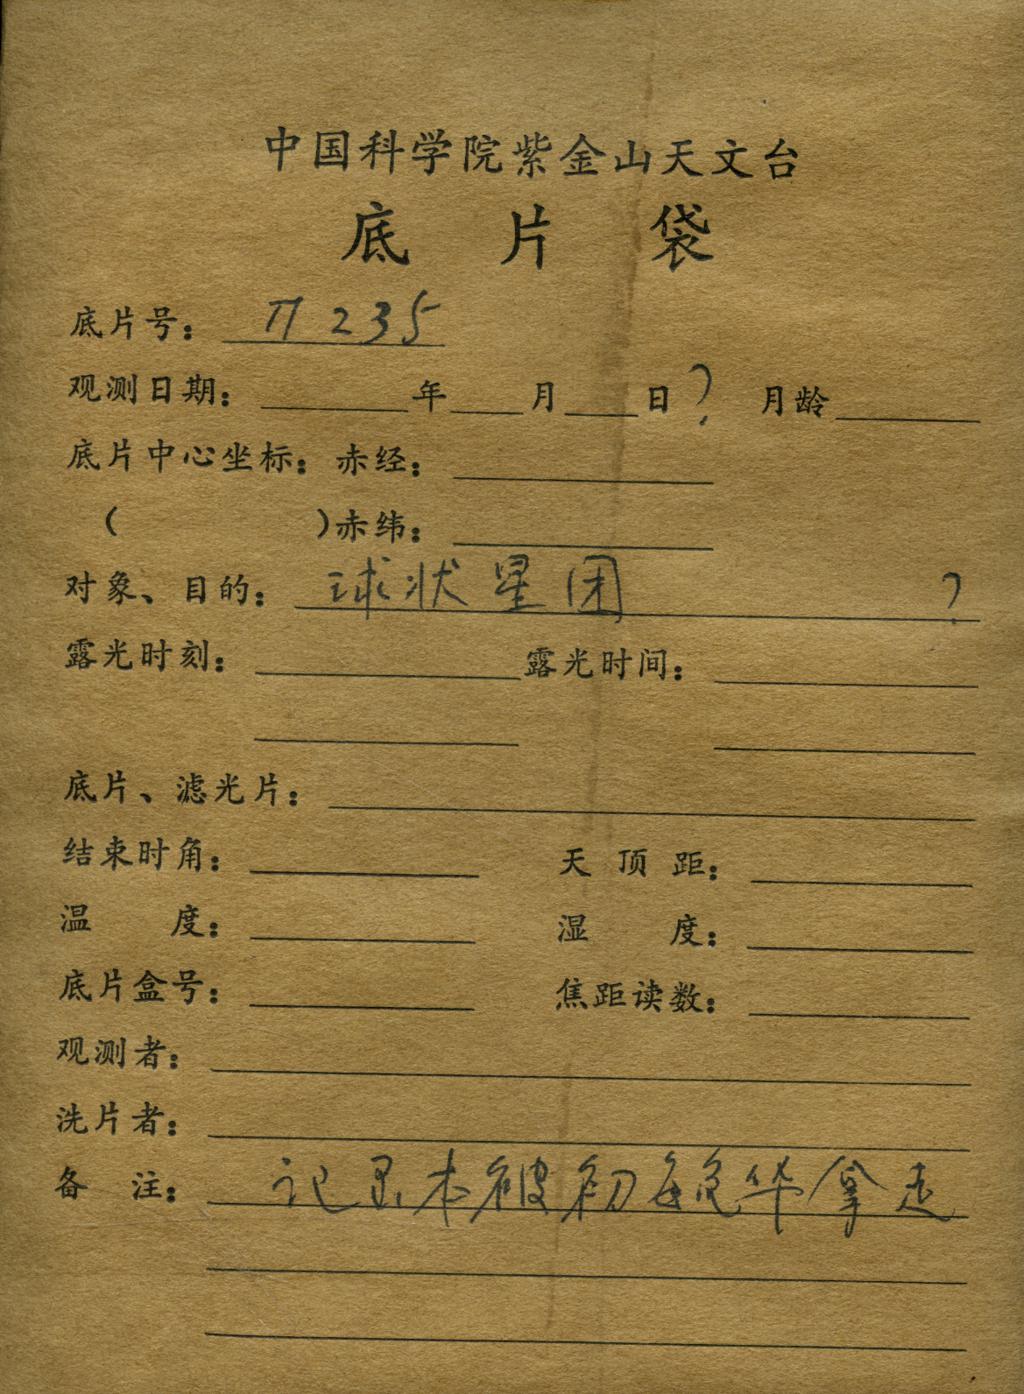 中国科学院紫金山天文台
底 片 袋
底片号： П 235
观测日期： 年 月 日 ? 月龄
底片中心坐标：赤经：
( )赤纬：
对象、目的： 球状星团 ?
露光时刻： 露光时间：
底片、滤光片：
结束时角： 天 顶 距：
温 度： 湿 度：
底片盒号： 焦距读数：
观测者：
洗片者：
备 注： 记录本被初毓华拿走